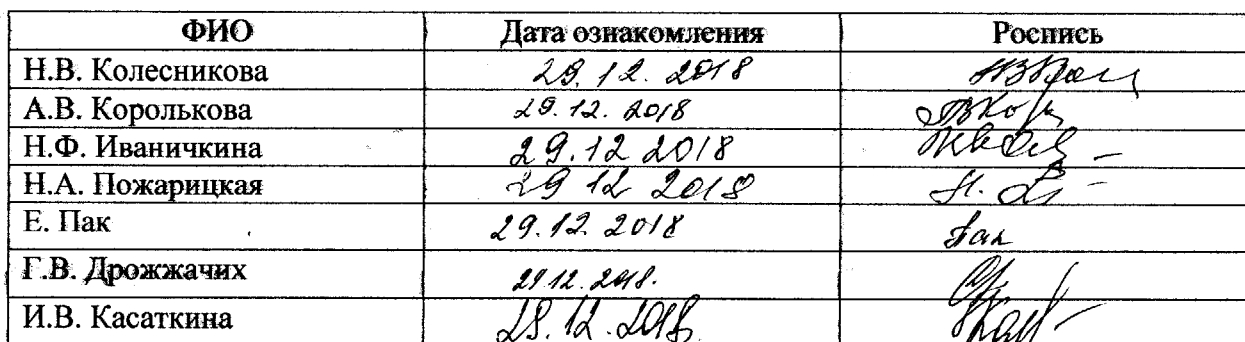 ФИО Дата ознакомления Роспись
Н.В. Колесникова 29.12.2018
А.В. Королькова 29.12.2018
Н.Ф. Иваничкина 29.12.2018
Н.А. Пожарицкая 29 12 2018
Е. Пак 29.12.2018 Пак
Г.В. Дрожжачих 29.12.2018.
И.В. Касаткина 29.12.2018.